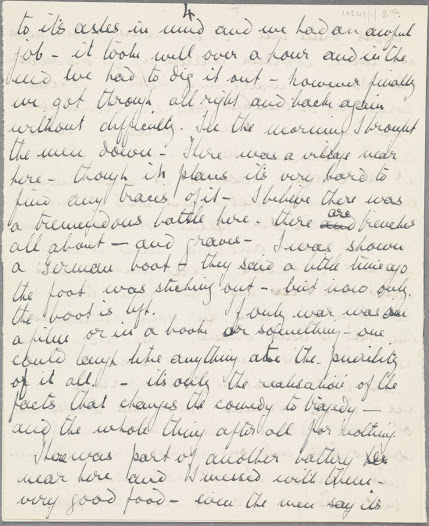 4
to its axles in mud and we had an awful
job - it took well over a hour and in the
end we had to dig it out - however finally
we got through all right and back again
without difficulty. In the morning I brought
the men down - There was a village near
here - though in places its very hard to
find any traces of it - I believe there was
a tremendous battle here - there are trenches
all about - and graves - I was shown
a German boot - they said a little time ago
the foot was sticking out - but now only
the boot is left. If only war was on
a film or in a book or something - one
could laugh like anything at the puerility
of it all. - its only the realisation of the
facts that changes the comedy to tragedy -
and the whole thing after all for nothing.
There was part of another battery
near here and I messed with them -
very good food - even the men say its